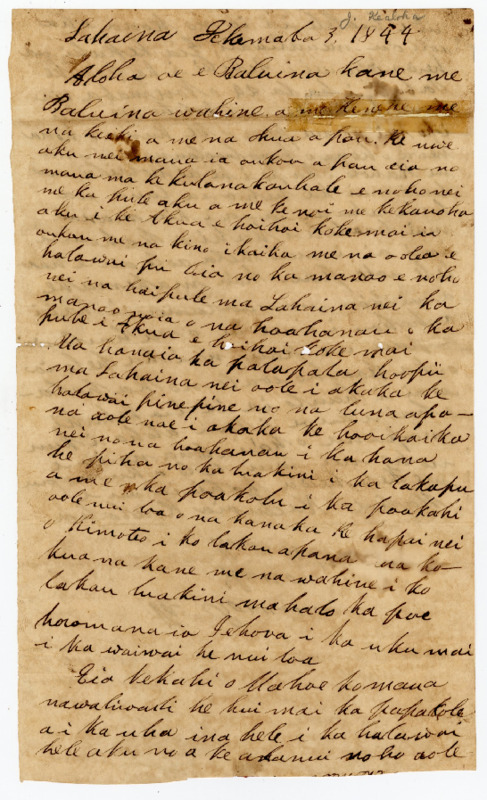 J. Kealoha
Lahaina Kekemaba 3, 1844
Aloha oe e Baluina kane me
Baluina wahine a me
na keiki a me na ohua apau. Ke uwe
aku nei maua ia oukou apau eia no
maua ma ke kulanakauhale e noho nei
me ka pule aku a me ke noi me ke kanoha
aku i ke Akua e hoihoi koke mai ia
oukou me na kino ikaika me na oolea e
halawai pu Eia no ka manao e noho
nei na haipule ma Lahaina nei ka
manao noia o na hoahanau o ka
pule i Akua e hoihoi koke mai
Ua hanaia ka palapala hoopii
ma Lahaina nei aole i akaka ke
halawai pinepine no na luna apa-
na aole nae i akaka ke hooikaika
nei no na hoahanau i ka hana
he piha no ka luakini i ka la kapu
a me ka poakolu i ka poakahi
aole nui loa o na kanaka Ke hapai nei
o Kimoteo i ko lakou apana ua ko-
kua na kane me na wahine i ko
lakou luakini mahalo ka poe
hoomana ia Iehova i ka uku mai
i ka waiwai he nui loa
Eia kekahi o Mahoe komaua
nawaliwali he hui mai ka papakole
a i ka uha ina hele i ka halawai
hele aku no a ke noho aole